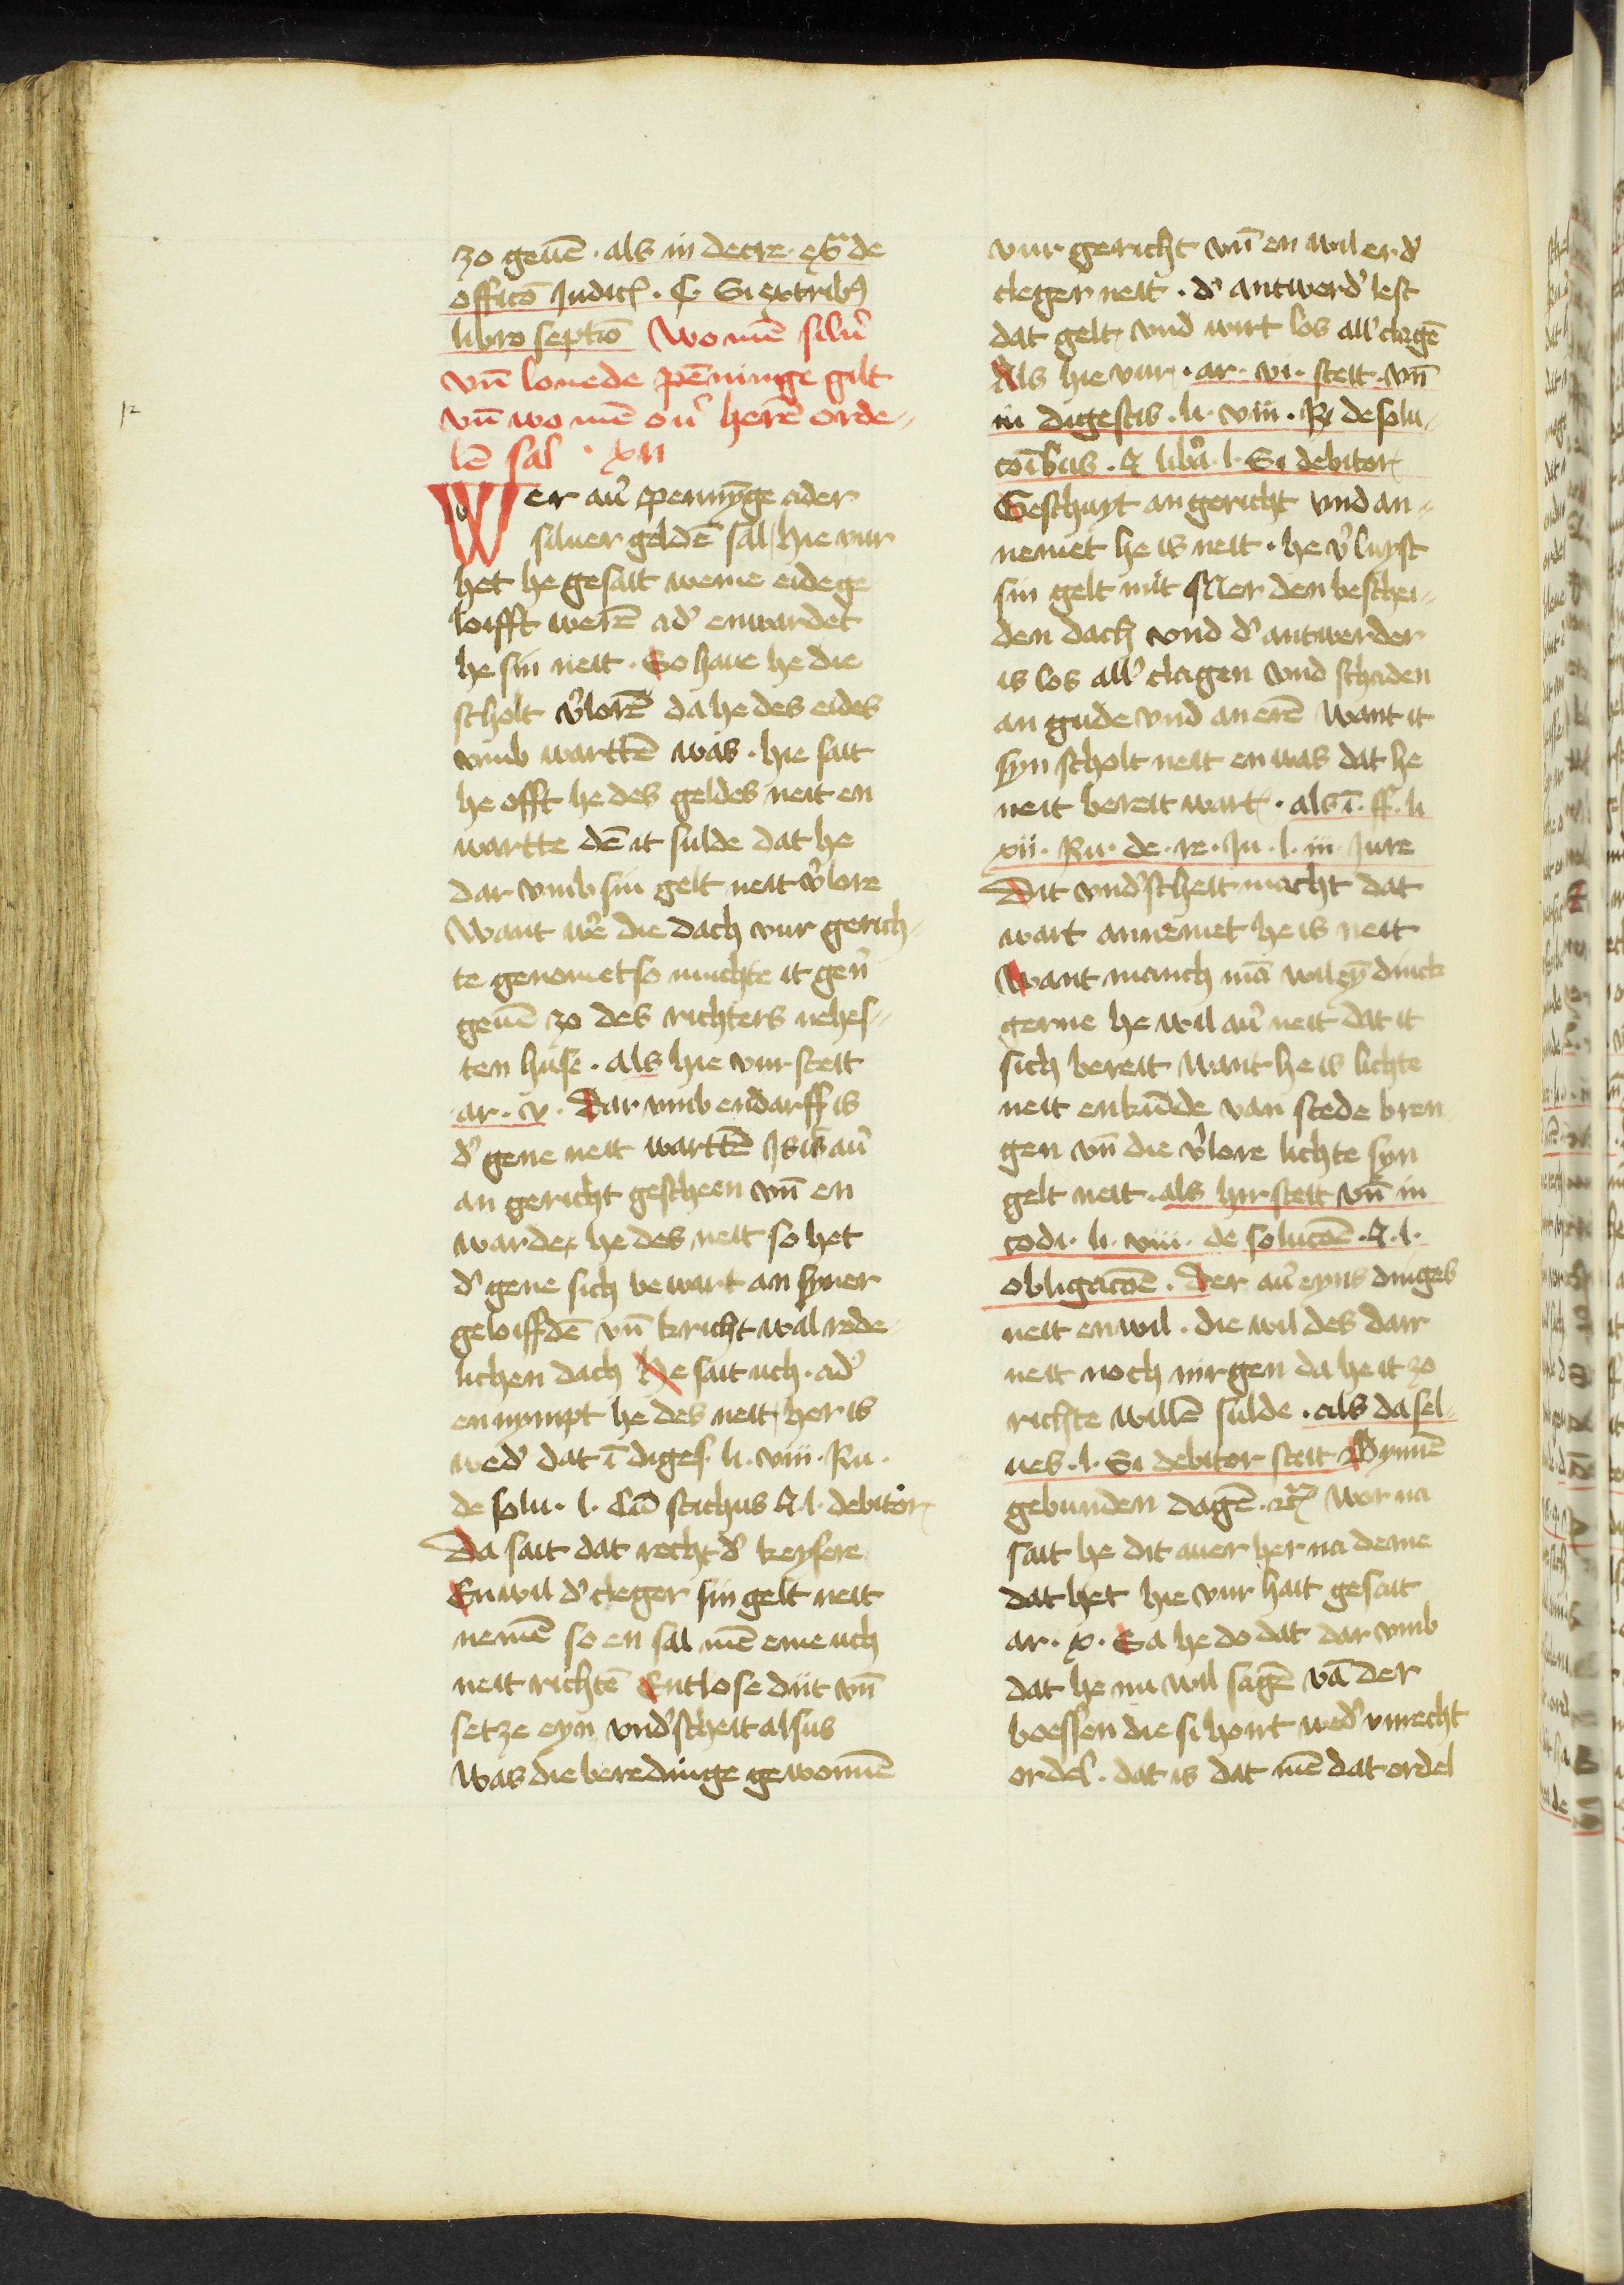 zo geuē · als in decre · ex̄ de
officō Judic̄ · C · Si ex tribꝰ
libro septīo Wo mē silu̾
vn̄ louede pēninge gilt
vn̄ wo mē ou̾ herē orde-
lē sal · xii
12
Wer au̾ pennȳge ader
siluer geldē sal / hie vur
het he gesait weme eidege
loifft werē ad̾ enwardet
he sin neit · So haue he die
scholt v̾lorē da he des eides
vmb warttē was · hie sait
he offt he des geldes neit en
wartte dē it sulde dat he
dar vmb sin gelt neit v̾lore
Want we̾ die dach vur gerich-
te genomet so muchte it gen̾
geuē zo des richters nehes-
ten huse · Als hie vur steit
ar · v · Dar vmb endarff is
d̾ gene neit warttē Is is au̾
an gericht gescheen vn̄ en
wardet he des neit so het
d̾ gene sich bewart an syner
geloiffdē vn̄ kricht wal rede
lichen dach He sait uch · ad̾
ennympt he des neit her is
wed̾ dat ī diges · li · viii · Ru ·
de solu · l · Cū stichus § · l · debitor
Da sait dat recht d̾ keysere
Enwil d̾ cleger sin gelt neit
nemē so en sal mē eme uch
neit richtē Entlose dit vn̄
setze eyn vnd̾scheit alsus
Was die beredinge gewonnē
vur gericht vn̄ en wil er d̾
cleger neit · d̾ antwerd̾ lest
dat gelt vnd wirt los all̾ clagē
Als hie vur · ar · vi · steit · vn̄
in digestis · li · viii · R̄ de solu-
coībus · § libā · l · Si debitor
Geschuyt an gericht vnd an-
nemet he is neit · he v̾luyst
sin gelt nit Mer den beschei-
den dach vnd d̾ antwerder
is los all̾ clagen vnd schaden
an gude vnd an erē Want it
syn scholt neit en was dat he
neit bereit wart · als ī · ff · li
xii · Ru · de · re · Iu · l · iii · Iure
Dit vnd̾scheit macht dat
wart annemet he is neit
Want manch mā wil eȳ dinck
gerne he wil au̾ neit dat it
sich bereit want he is lichte
neit enkūde van stede bren
gen vn̄ die v̾lore lichte syn
gelt neit · als hir steit vn̄ in
codi · li · viii · de solucōe · § · l ·
obligacōe · Der au̾ eyns dinges
neit enwil · die wil des dair
neit noch nirgen da he it zo
richte willē sulde · als da sel-
ues · l · Si debitor steit Bynnē
gebunden dagē · ꝛc̄ Wor na
sait he dit auer her na deme
dat het hie vur hait gesait
ar · x · Sa he do dat dar vmb
dat he nu wil sagē vā der
boessen die si hoirt wed̾ vnrecht
ordel · dat is dat mē dat ordel